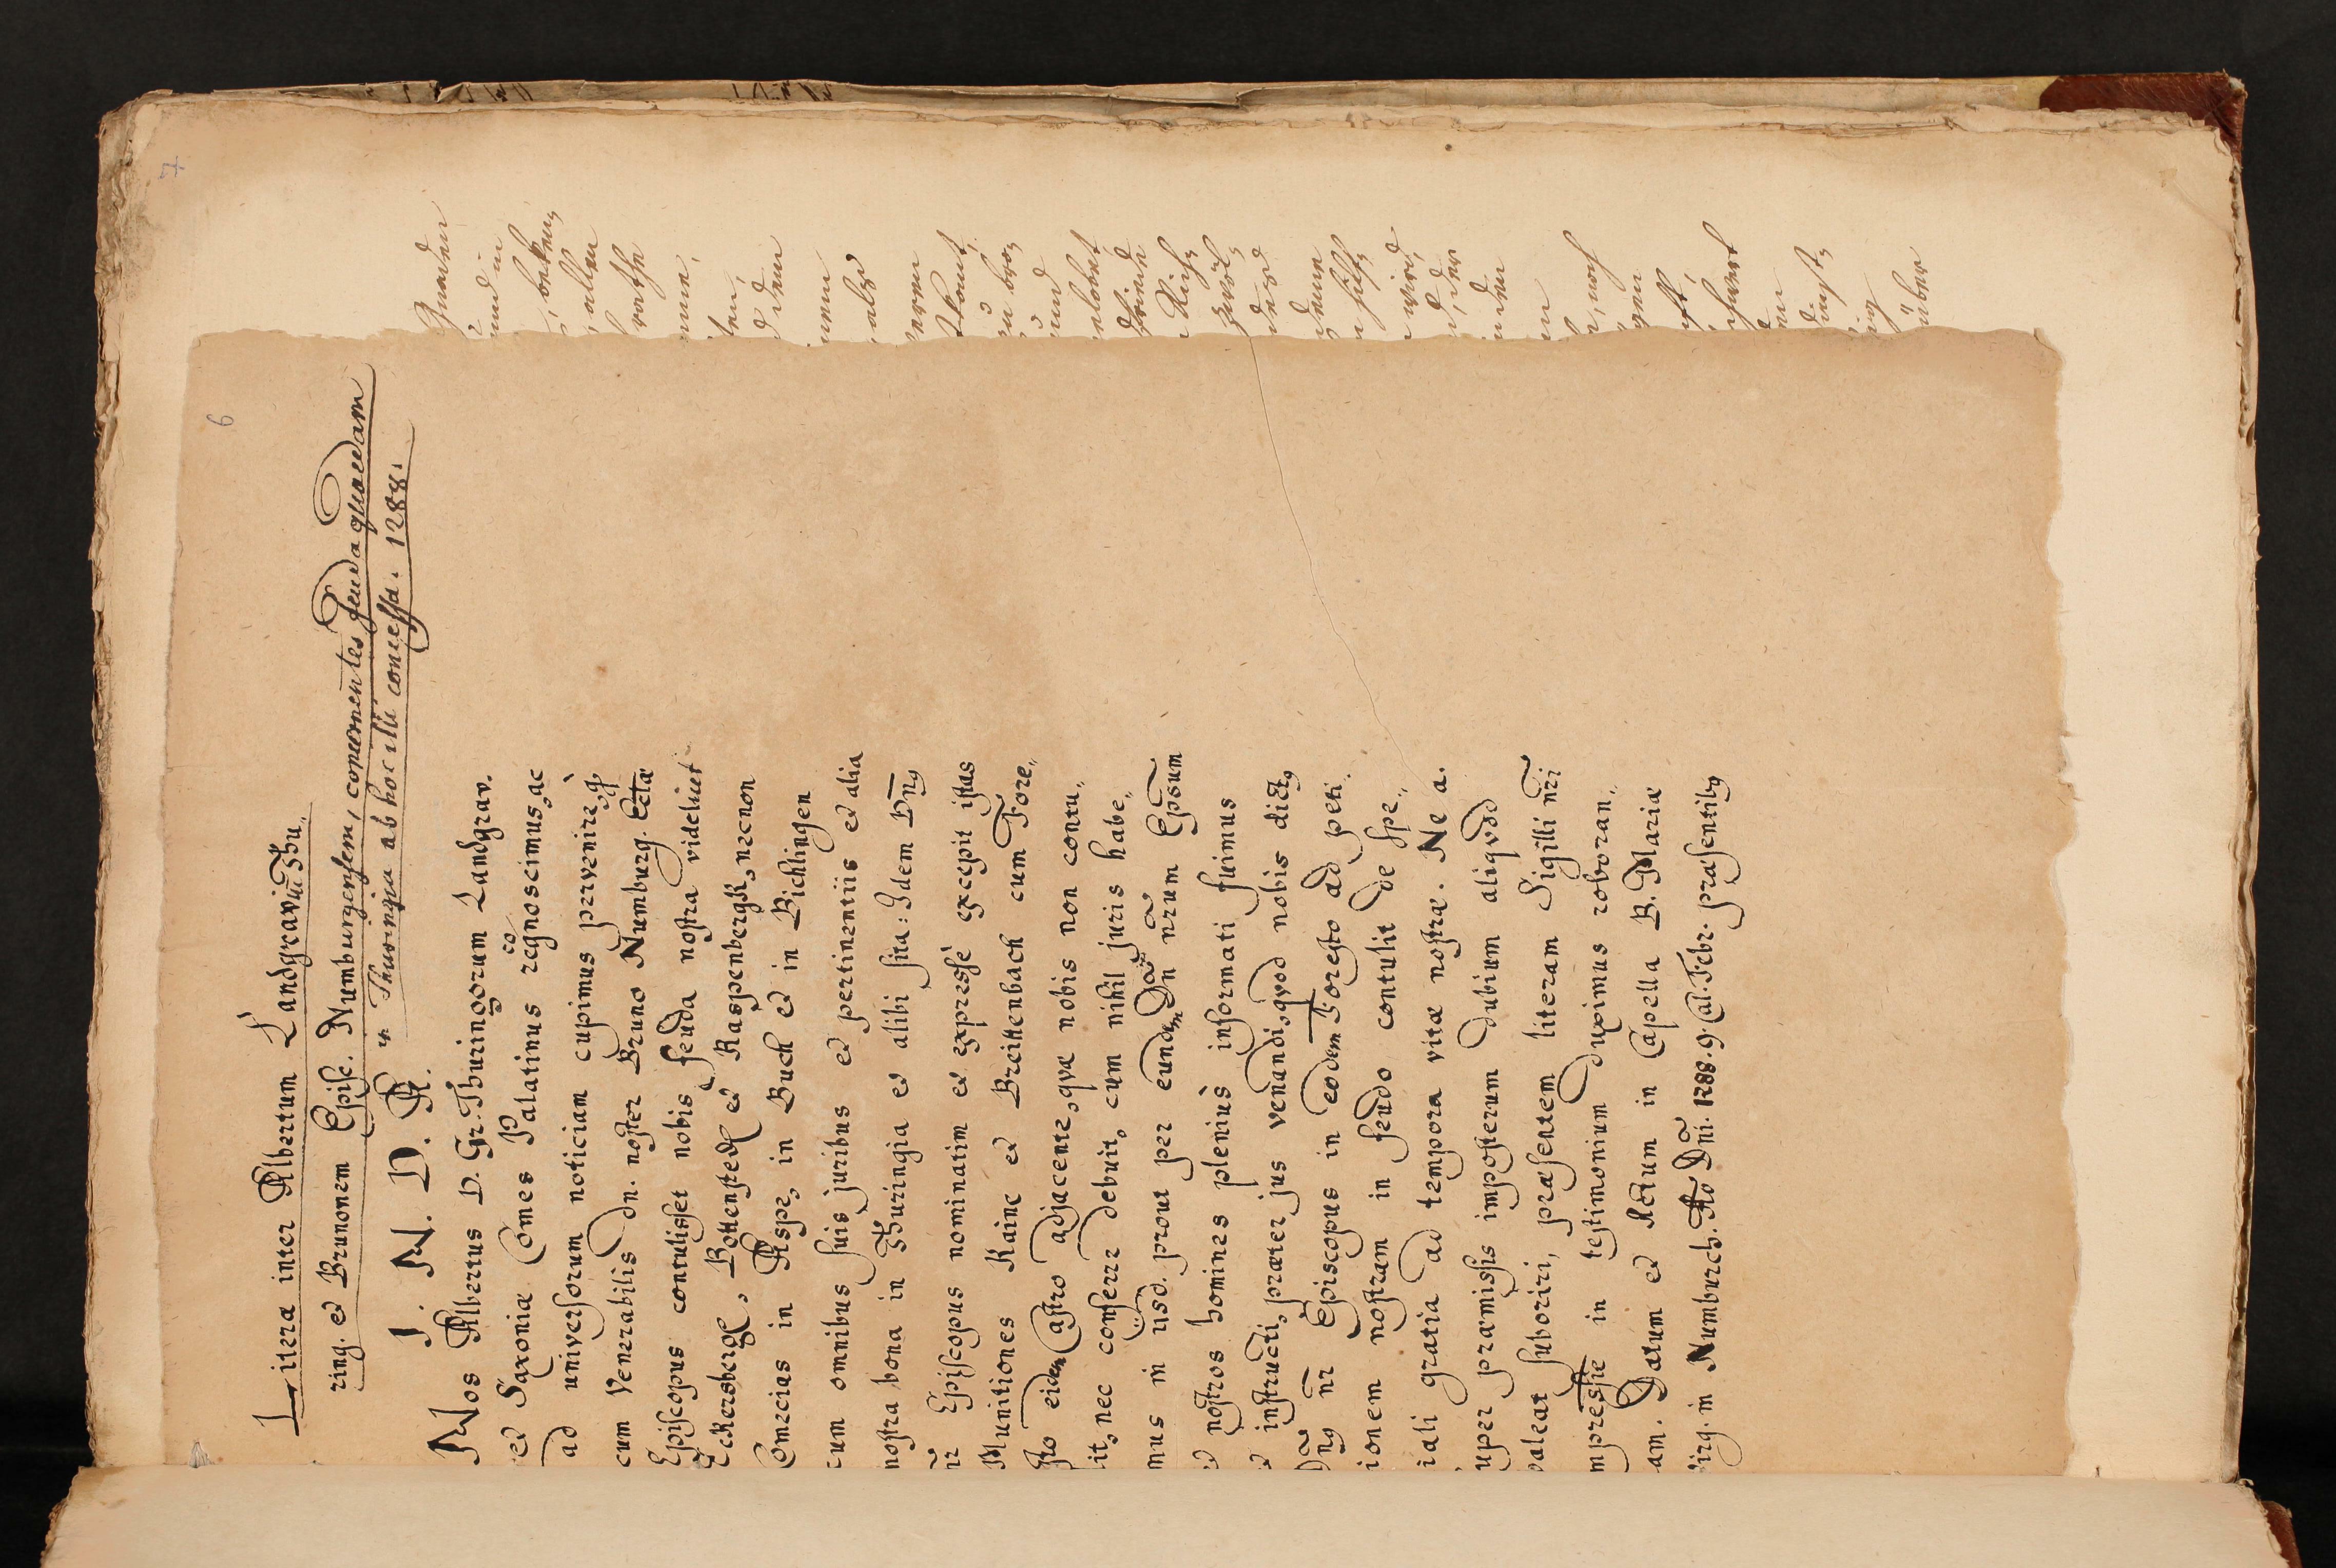 6
Litera inter Albertum Landgravium Thu„
ring. et Brunonem Episc. Numburgensem, concernentes feuda quaedam
in Thuringia ab hoc illi concessa. 1288.
J. N. D. A.
Nos Albertus D. Gr. Thuringorum Landgrav.
et Saxoniæ Comes Palatinus recognoscimus, ac
ad universorum noticiam cupimus pervenire, qp
cum Venerabilis dn. noster Bruno Numburg. Ecclæ
Episcopus contulisset nobis feuda nostra videlicet
Eckersberge, Bottenstedt et Raspenbergk, necnon
Comecias in Aspe, in Buch et in Bichlingen
cum omnibus suis juribus et pertinentiis et alia
nostra bona in Thuringia et alibi sita: Idem Dnꝰ
nr̃ Episcopus nominatim et expressè excepit istas
Munitiones Kainc et Breittenbach cum Fore„
sto eidem Castro adjacente, qvæ nobis non contu„
lit, nec conferre debuit, cum nihil juris habe„
mus in iisd. prout per eundem Dn nr̃um Epm̃
et nostros homines pleniùs informati fuimus
et instructi, præter jus venandi, qvod nobis dictꝰ
Dnꝰ nr̃ Episcopus in eodem Foresto ad peti
ionem nostram in feudo contulit de spe„
iali gratia ad tempora vitæ nostræ. Ne a.
uper præmissis imposterum dubium aliqvod
valeat suboriri, præsentem literam Sigilli nr̃i
mpressie in testimonium duximus roboran„
am. Datum et Actum in Capella B. Mariæ
Virg. in Numburch. Ao Dn̄i. 1288. 9. Cal. Febr. præsentibꝰ
7
Gnaden
und in
bethen,
allen
rathe
den
als
und
gelobet
Reichs
wird,
der
den
noch
über